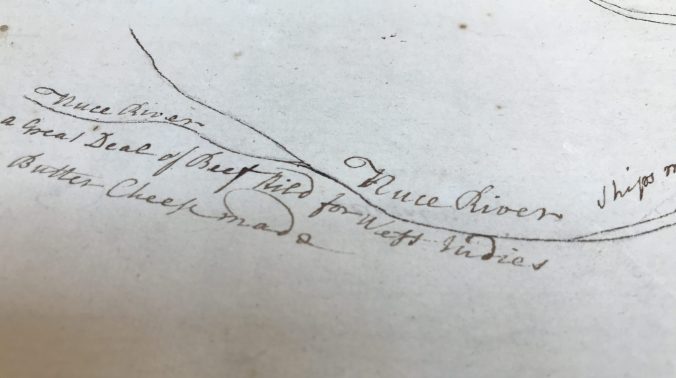 Nuce River
a Great Deal of Beef kild for West Indies
Butter Chees made
Nuce River
Ships